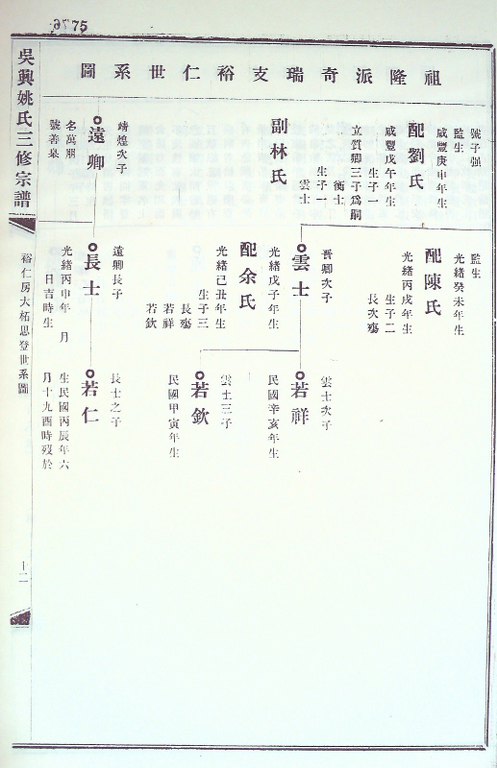 75
祖隆派奇瑞支裕仁世系圖
號子强
監生
咸豐庚申年生
配劉氏
咸豐戊午年生
生子一
立質卿三子爲嗣
衡士
生子一
雲士
副林氏
靖煌次子
遠卿
名萬朋
號善柒
監生
光緒癸未年生
配陳氏
光緒丙戌年生
生子二
長次殤
晋卿次子
雲士
光緒戊子年生
配余氏
光緒己丑年生
生子三
長殤
若祥
若欽
遠卿長子
長士
光緒丙申年 月
日吉時生
雲士次子
若祥
民國辛亥年生
雲士三子
若欽
民國甲寅年生
長士之子
若仁
生民國丙辰年六
月十九酉時歿於
吳興姚氏三修宗譜
裕仁房大柘思登世系圖
十二